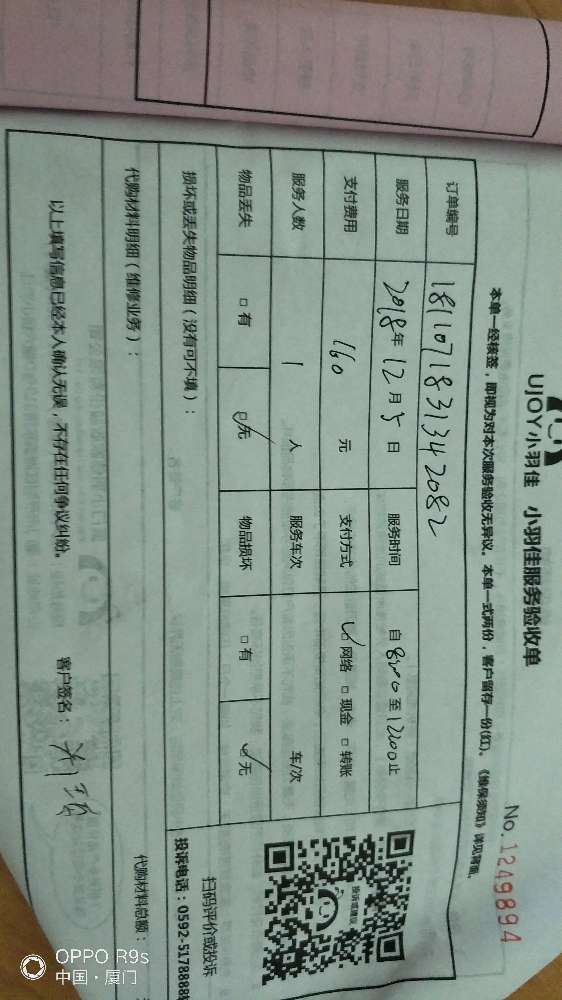 UJOY小羽佳 小羽佳服务验收单
No. 1249894
本单一经核签，即视为对本次服务验收无异议。本单一式两份，客户留存一份(红)。《维保须知》详见背面。
订单编号 1811071831342082
服务日期 2018年12月5日 服务时间 自8:00至12:00止
支付费用 160元 支付方式 ☑网络 □现金 □转账
服务人数 1人 服务车次 车/次
物品丢失 □有 ☑无 物品损坏 □有 ☑无
损坏或丢失物品明细（没有可不填）：
代购材料明细（维修业务）：
代购材料总额：
以上填写信息已经本人确认无误，不存在任何争议纠纷。
客户签名：
投诉或建议
扫码评价或投诉
投诉电话：0592-5178888
OPPO R9s
中国·厦门